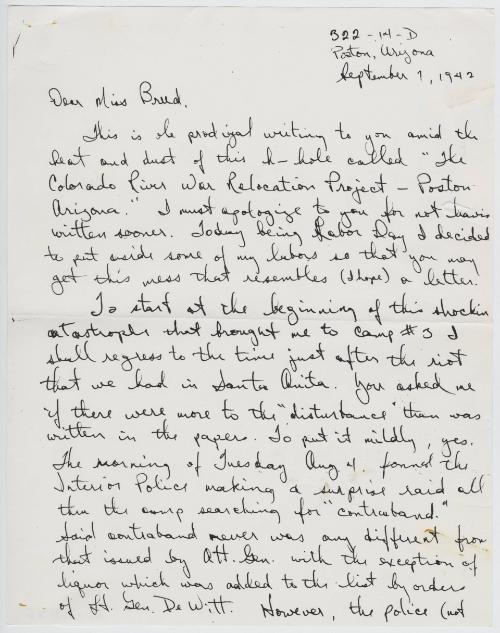 322-14-D
Poston, Arizona
September 7, 1942
Dear Miss Breed,
This is the prodigal writing to you amid the
heat and dust of this h-hole called "The
Colorado River War Relocation Project - Poston
Arizona." I must apologize to you for not having
written sooner. Today being Labor Day I decided
to put aside some of my labors so that you may
get this mess that resembles (I hope) a letter.
To start at the beginning of this shockin
catastrophe that brought me to Camp #3 I
shall regress to the time just after the riot
that we had in Santa Anita. You asked me
if there were more to the "disturbance" than was
written in the papers. To put it mildly, yes.
The morning of Tuesday Aug 4. found the
Interior Police making a surprise raid all
thru the camp searching for "contraband."
Said contraband never was any different from
that issued by Att. Gen. with the exception of
liquor which was added to the list by orders
of Lt. Gen. De Witt. However, the police (not